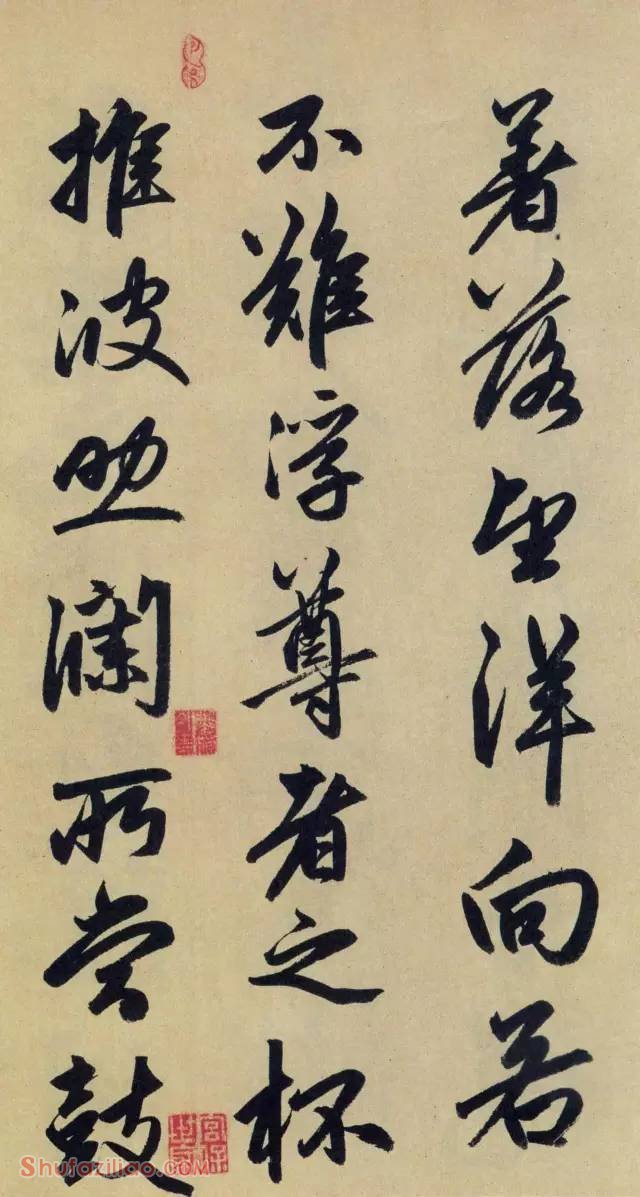 著落望洋向若
不難浮尊者之杯
推波助瀾所當鼓
Shufaziliao.com